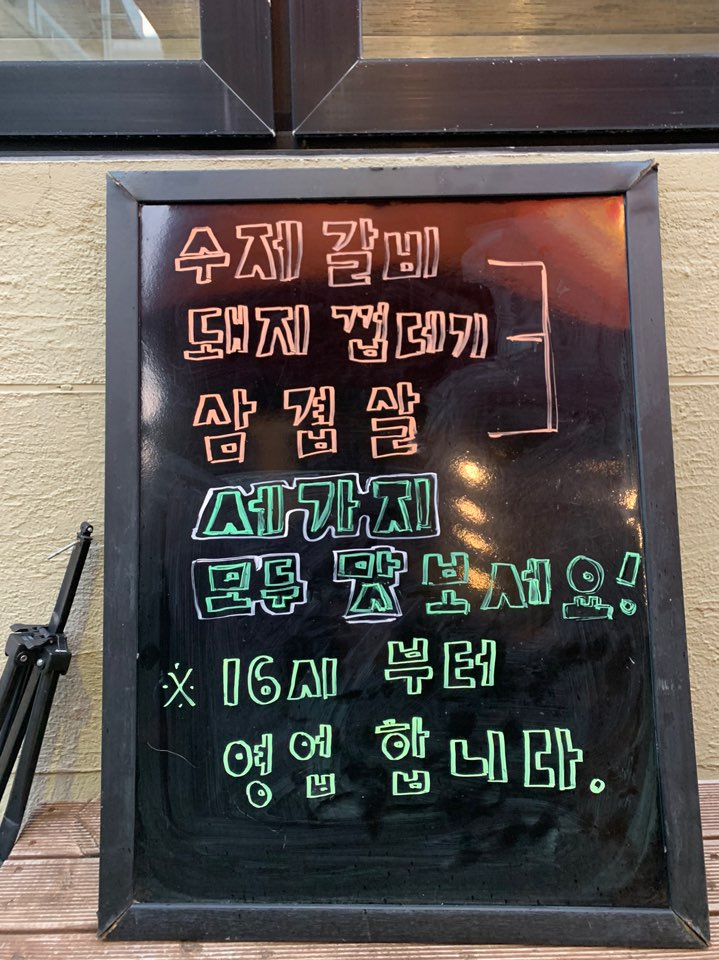 수제 갈비
돼지 껍데기
삼겹살
세가지
모두 맛보세요!
※ 16시 부터
영업 합니다.